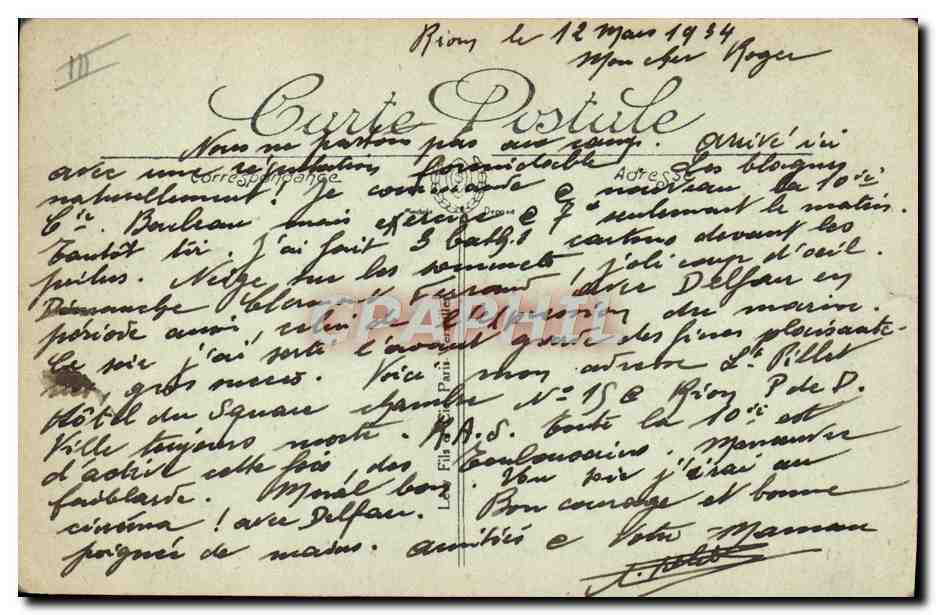 III
Riom le 12 Mars 1934
Mon cher Roger
Carte Postale
Nous ne partons pas au camp. Arrivé ici
avec une réputation formidable Les blagues
Correspondance
Adresse
naturellement! Je commande à nouveau la 10ème
Cie. Bouleau mais exercice à 7h seulement le matin.
Tantôt tir. J'ai fait 3 cartons devant les
poilus. Neige sur les sommets, joli coup d'oeil.
Dimanche avec Delfau en
période aussi celui de l'expression du marine
Ce soir j'ai sorti l'avant garde des fines plaisante-
ries, gros succès. Voici mon adresse Lt. Pillet
Hôtel du Square chambre No 15 à Riom P de D.
Ville toujours morte. R.A.S. toute la 10ème est
d'active cette fois, des Toulousains. Manoeuvre
faiblarde. Moral bon. Ce soir j'irai au
cinéma! avec Delfau. Bon courage et bonne
poignée de mains. amitiés à Votre Maman
Les Fils Cie Paris
CPAPHIL